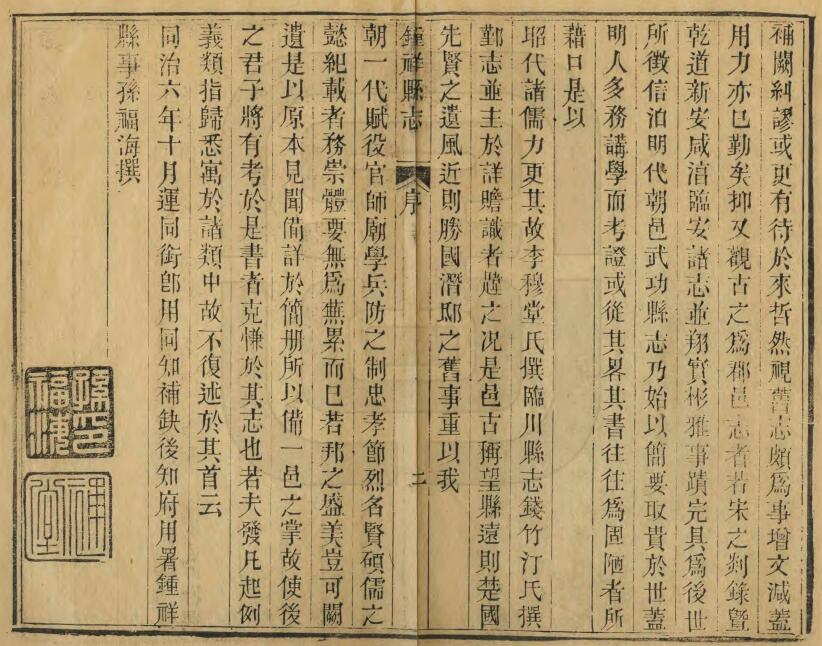 補闕糾謬或更有待於來哲然視舊志頗爲事增文減蓋
用力亦已勤矣抑又觀古之爲郡邑志者若宋之剡錄曁
乾道新安咸湻臨安諸志並翔實彬雅事蹟完具爲後世
所徵信洎明代朝邑武功縣志乃始以簡要取貴於世蓋
明人多務講學而考證或從其畧其書往往爲固陋者所
藉口是以
昭代諸儒力更其故李穆堂氏撰臨川縣志錢竹汀氏撰
鄞志並主於詳贍識者韙之况是邑古稱望縣遠則楚國
先賢之遺風近則勝國潛邸之舊事重以我
鍾祥縣志 序 二
朝一代賦役官師廟學兵防之制忠孝節烈名賢碩儒之
懿紀載者務崇體要無爲蕪累而已若邦之盛美豈可闕
遺是以原本見聞備詳於簡册所以備一邑之掌故使後
之君子將有考於是書者克慊於其志也若夫發凡起例
義類指歸悉寓於諸類中故不復述於其首云
同治六年十月運同銜卽用同知補缺後知府用署鍾祥
縣事孫福海撰
孫福海印